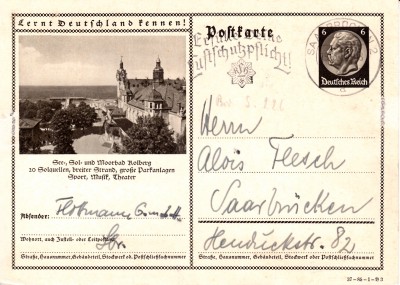 Lernt Deutschland kennen!
Postkarte
Erfülle eine
Luftschutzpflicht!
SAARBRÜCKEN 2
6 6
Deutsches Reich
See-, Sol- und Moorbad Kolberg
20 Solquellen, breiter Strand, große Parkanlagen
Sport, Musik, Theater
Absender:
Wohnort, auch Zustell- oder Leitpostamt
Straße, Hausnummer, Gebäudeteil, Stockwerk od. Postschließfachnummer
Herrn
Alois Flesch
Saarbrücken
Henduckstr. 82
Straße, Hausnummer, Gebäudeteil, Stockwerk oder Postschließfachnummer